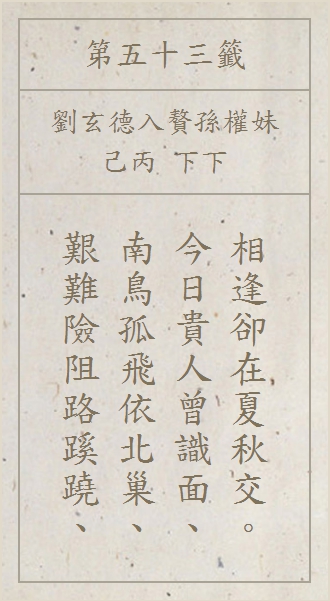 第五十三籤
劉玄德入贅孫權妹
己丙 下下
相逢卻在夏秋交。
今日貴人曾識面、
南鳥孤飛依北巢、
艱難險阻路蹊蹺、